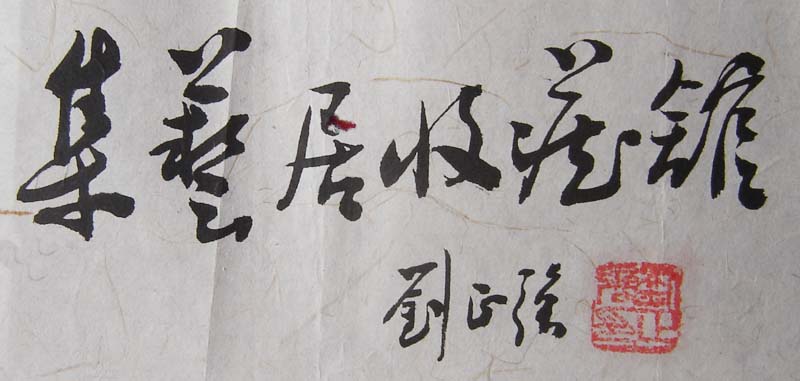 集藝居收藏館
劉正強